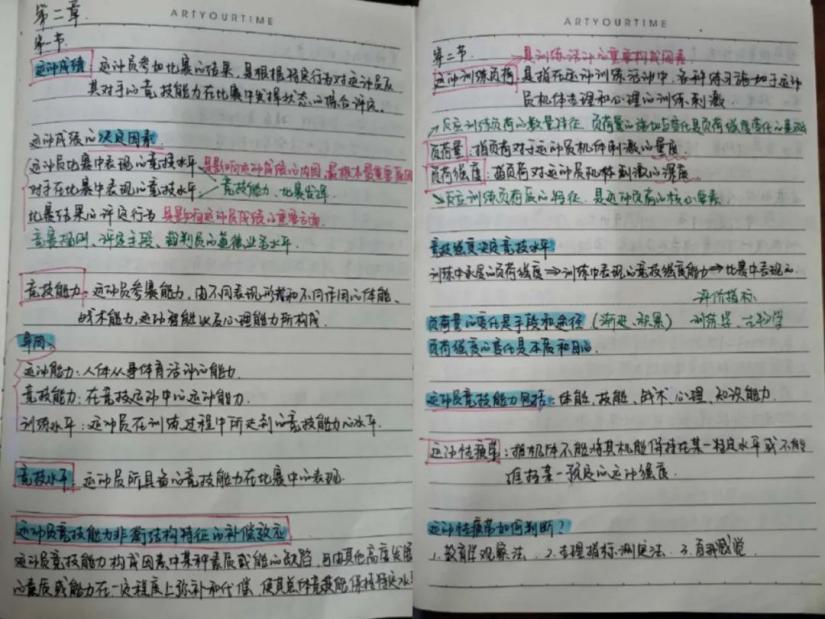 ARTYOURTIME
第二章
第一节
运动成绩：运动员参加比赛的结果，是根据特定行为对运动员及
其对手的竞技能力在比赛中发挥状态的综合评定。
运动成绩的决定因素
运动员比赛中表现的竞技水平 是影响运动成绩的内因，最根本最重要
对手在比赛中表现的竞技水平 竞技能力、比赛发挥
比赛结果的评定行为 是影响运动员成绩的重要方面
竞赛规则、评定手段、裁判员的道德业务水平
竞技能力：运动员参赛能力，由不同表现形式和不同作用的体能、
战术能力，运动智能以及心理能力所构成。
异同
运动能力：人体从事体育活动的能力
竞技能力：在竞技运动中的运动能力
训练水平：运动员在训练过程中所达到的竞技能力的水平
竞技水平：运动员所具备的竞技能力在比赛中的表现
运动员竞技能力非衡结构特征的补偿效应
运动员竞技能力构成因素中某种素质或能力的缺陷，可由其他高度发展
的素质或能力在一定程度上弥补和代偿，使其总体竞技能力保持特定水
ARTYOURTIME
第二节
是训练活动的重要构成因素
运动训练负荷：是指在运动训练活动中，各种练习施加于运动
员机体生理和心理的训练刺激
反应训练负荷的数量特征 负荷量的增加与变化是负荷强度变化的基础
负荷量：指负荷对于运动员机体刺激的量度
负荷强度：指负荷对运动员机体刺激的深度
反应训练负荷质的特征 是运动负荷的核心要素
竞技强度决定竞技水平
训练中承层的负荷强度⇒训练中表现的竞技强度能力⇒比赛中表现的
评价指标
负荷量的变化是手段和途径（渐进、积累） 训练学、生物学
负荷强度的变化是本质和目的
运动员竞技能力包括：体能、技能、战术、心理、知识能力
运动性疲劳：指机体不能将其机能保持在某一特定水平或不能
维持某一预定的运动强度
运动性疲劳如何判断？
1.教育学观察法 2.生理指标测定法 3.自我感觉